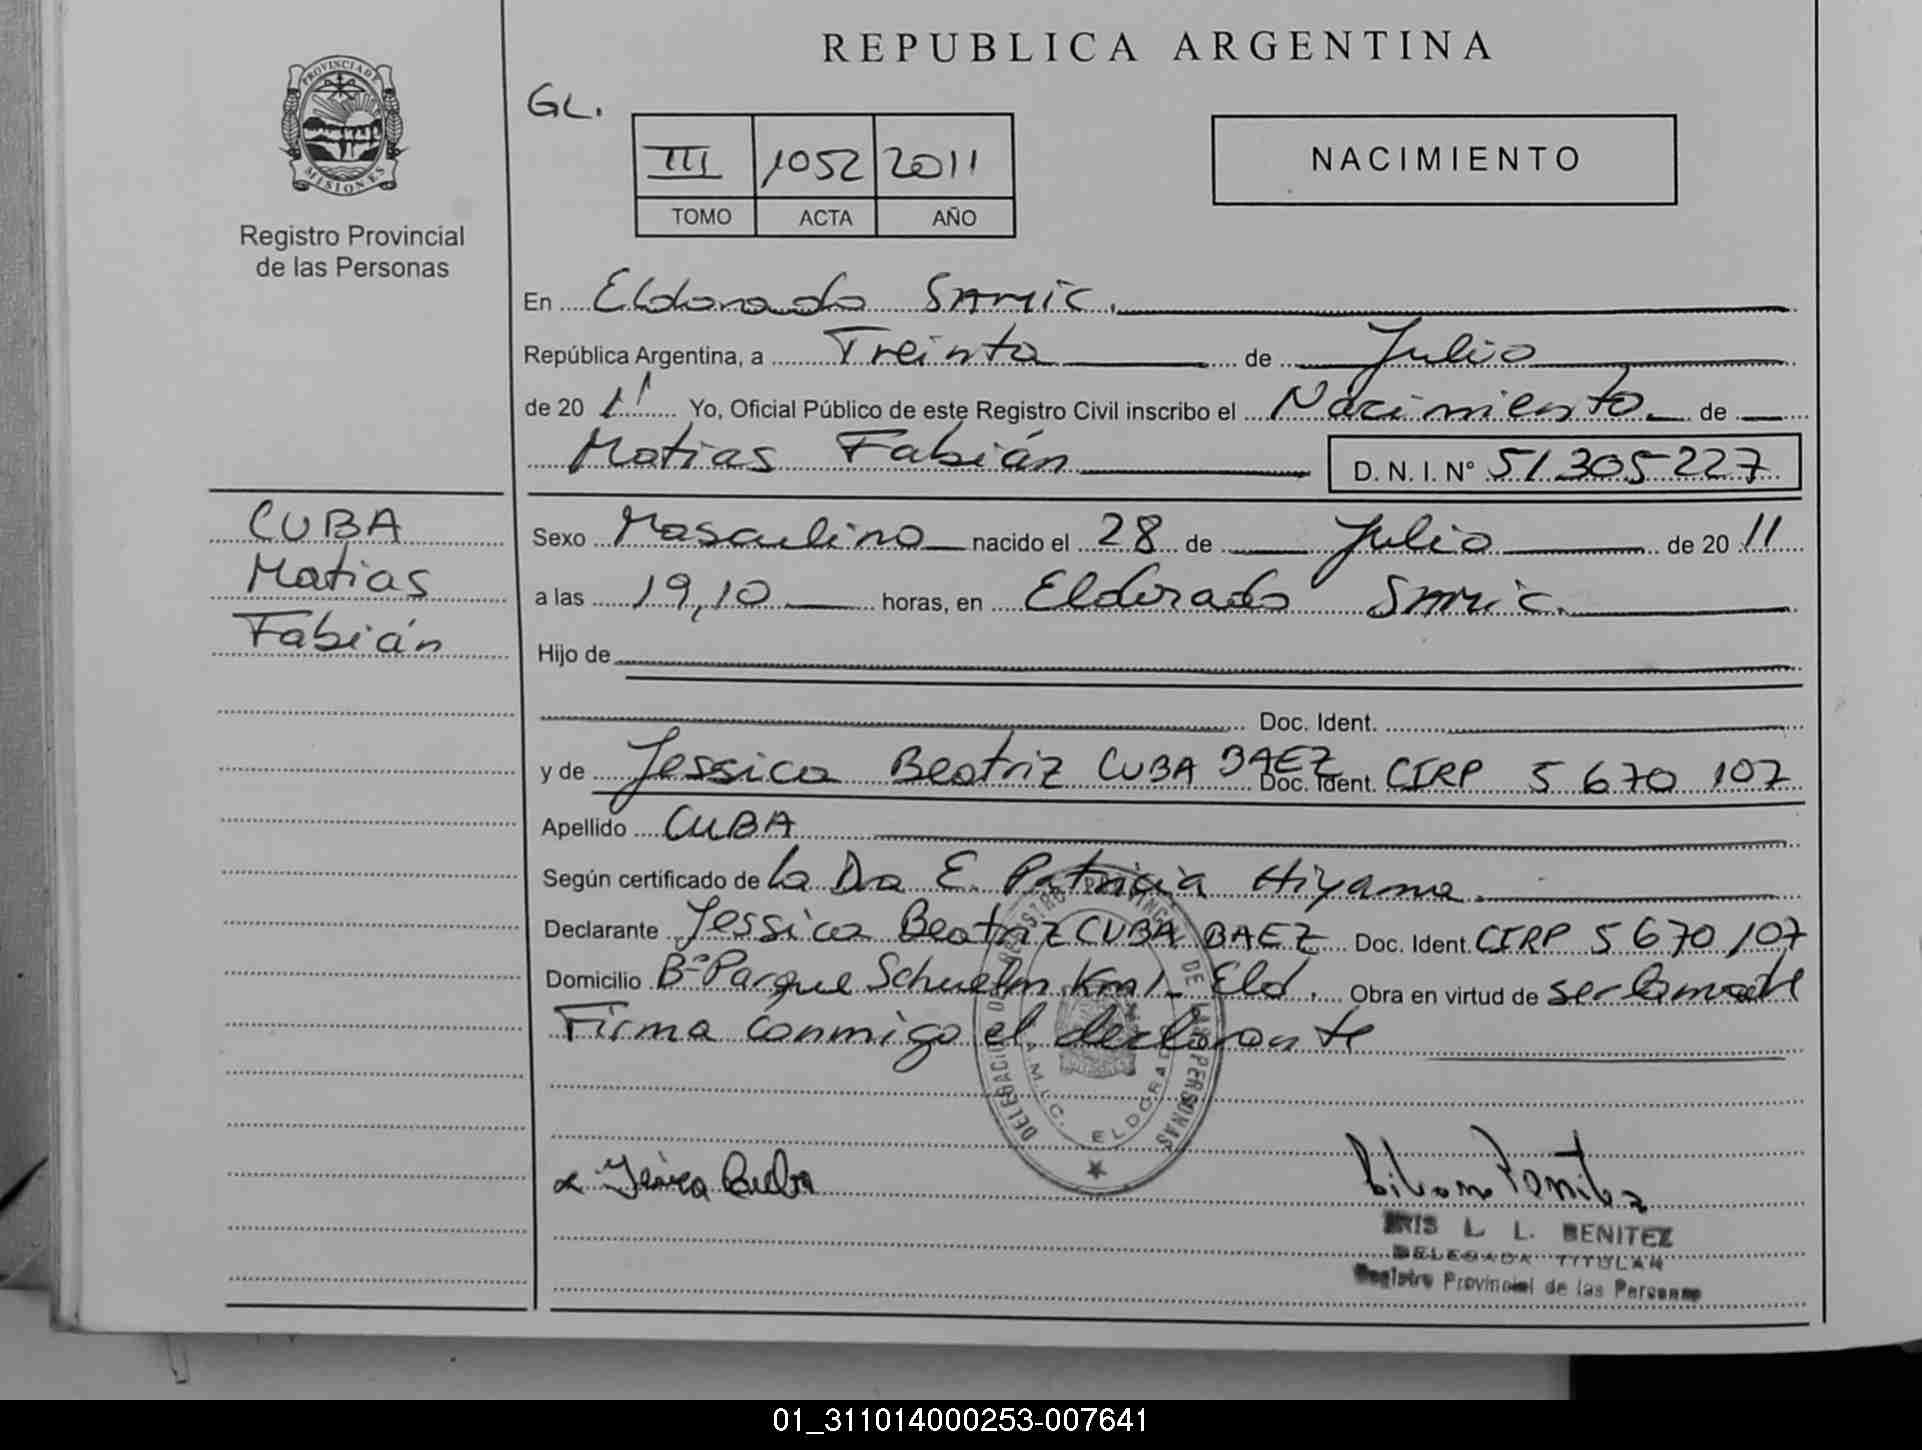 PROVINCIA DE
MISIONES
Registro Provincial
de las Personas
REPUBLICA ARGENTINA
GL.
III 1052 2011
TOMO ACTA AÑO
NACIMIENTO
En Eldorado SAMIC.
República Argentina, a Treinta de Julio
de 20 11 Yo, Oficial Público de este Registro Civil inscribo el Nacimiento de
Matias Fabián D. N. I. Nº 51.305.227
CUBA
Matias
Fabián
Sexo Masculino nacido el 28 de Julio de 20 11
a las 19,10 horas, en Eldorado Samic.
Hijo de
Doc. Ident.
y de Jessica Beatriz CUBA BAEZ Doc. Ident. CIRP 5 670 107
Apellido CUBA
Según certificado de la Dra E. Patricia Hiyama
Declarante Jessica Beatriz CUBA BAEZ Doc. Ident. CIRP 5 670 107
Domicilio Bº Parque Km 1 Eld. Obra en virtud de ser la madre
Firma conmigo el declarante
DELEGACION DE REGISTRO PROVINCIAL DE LAS PERSONAS
S.A.M.I.C. ELDORADO
Cuba
IRIS L. L. BENITEZ
DELEGADA TITULAR
Registro Provincial de las Personas
01_311014000253-007641